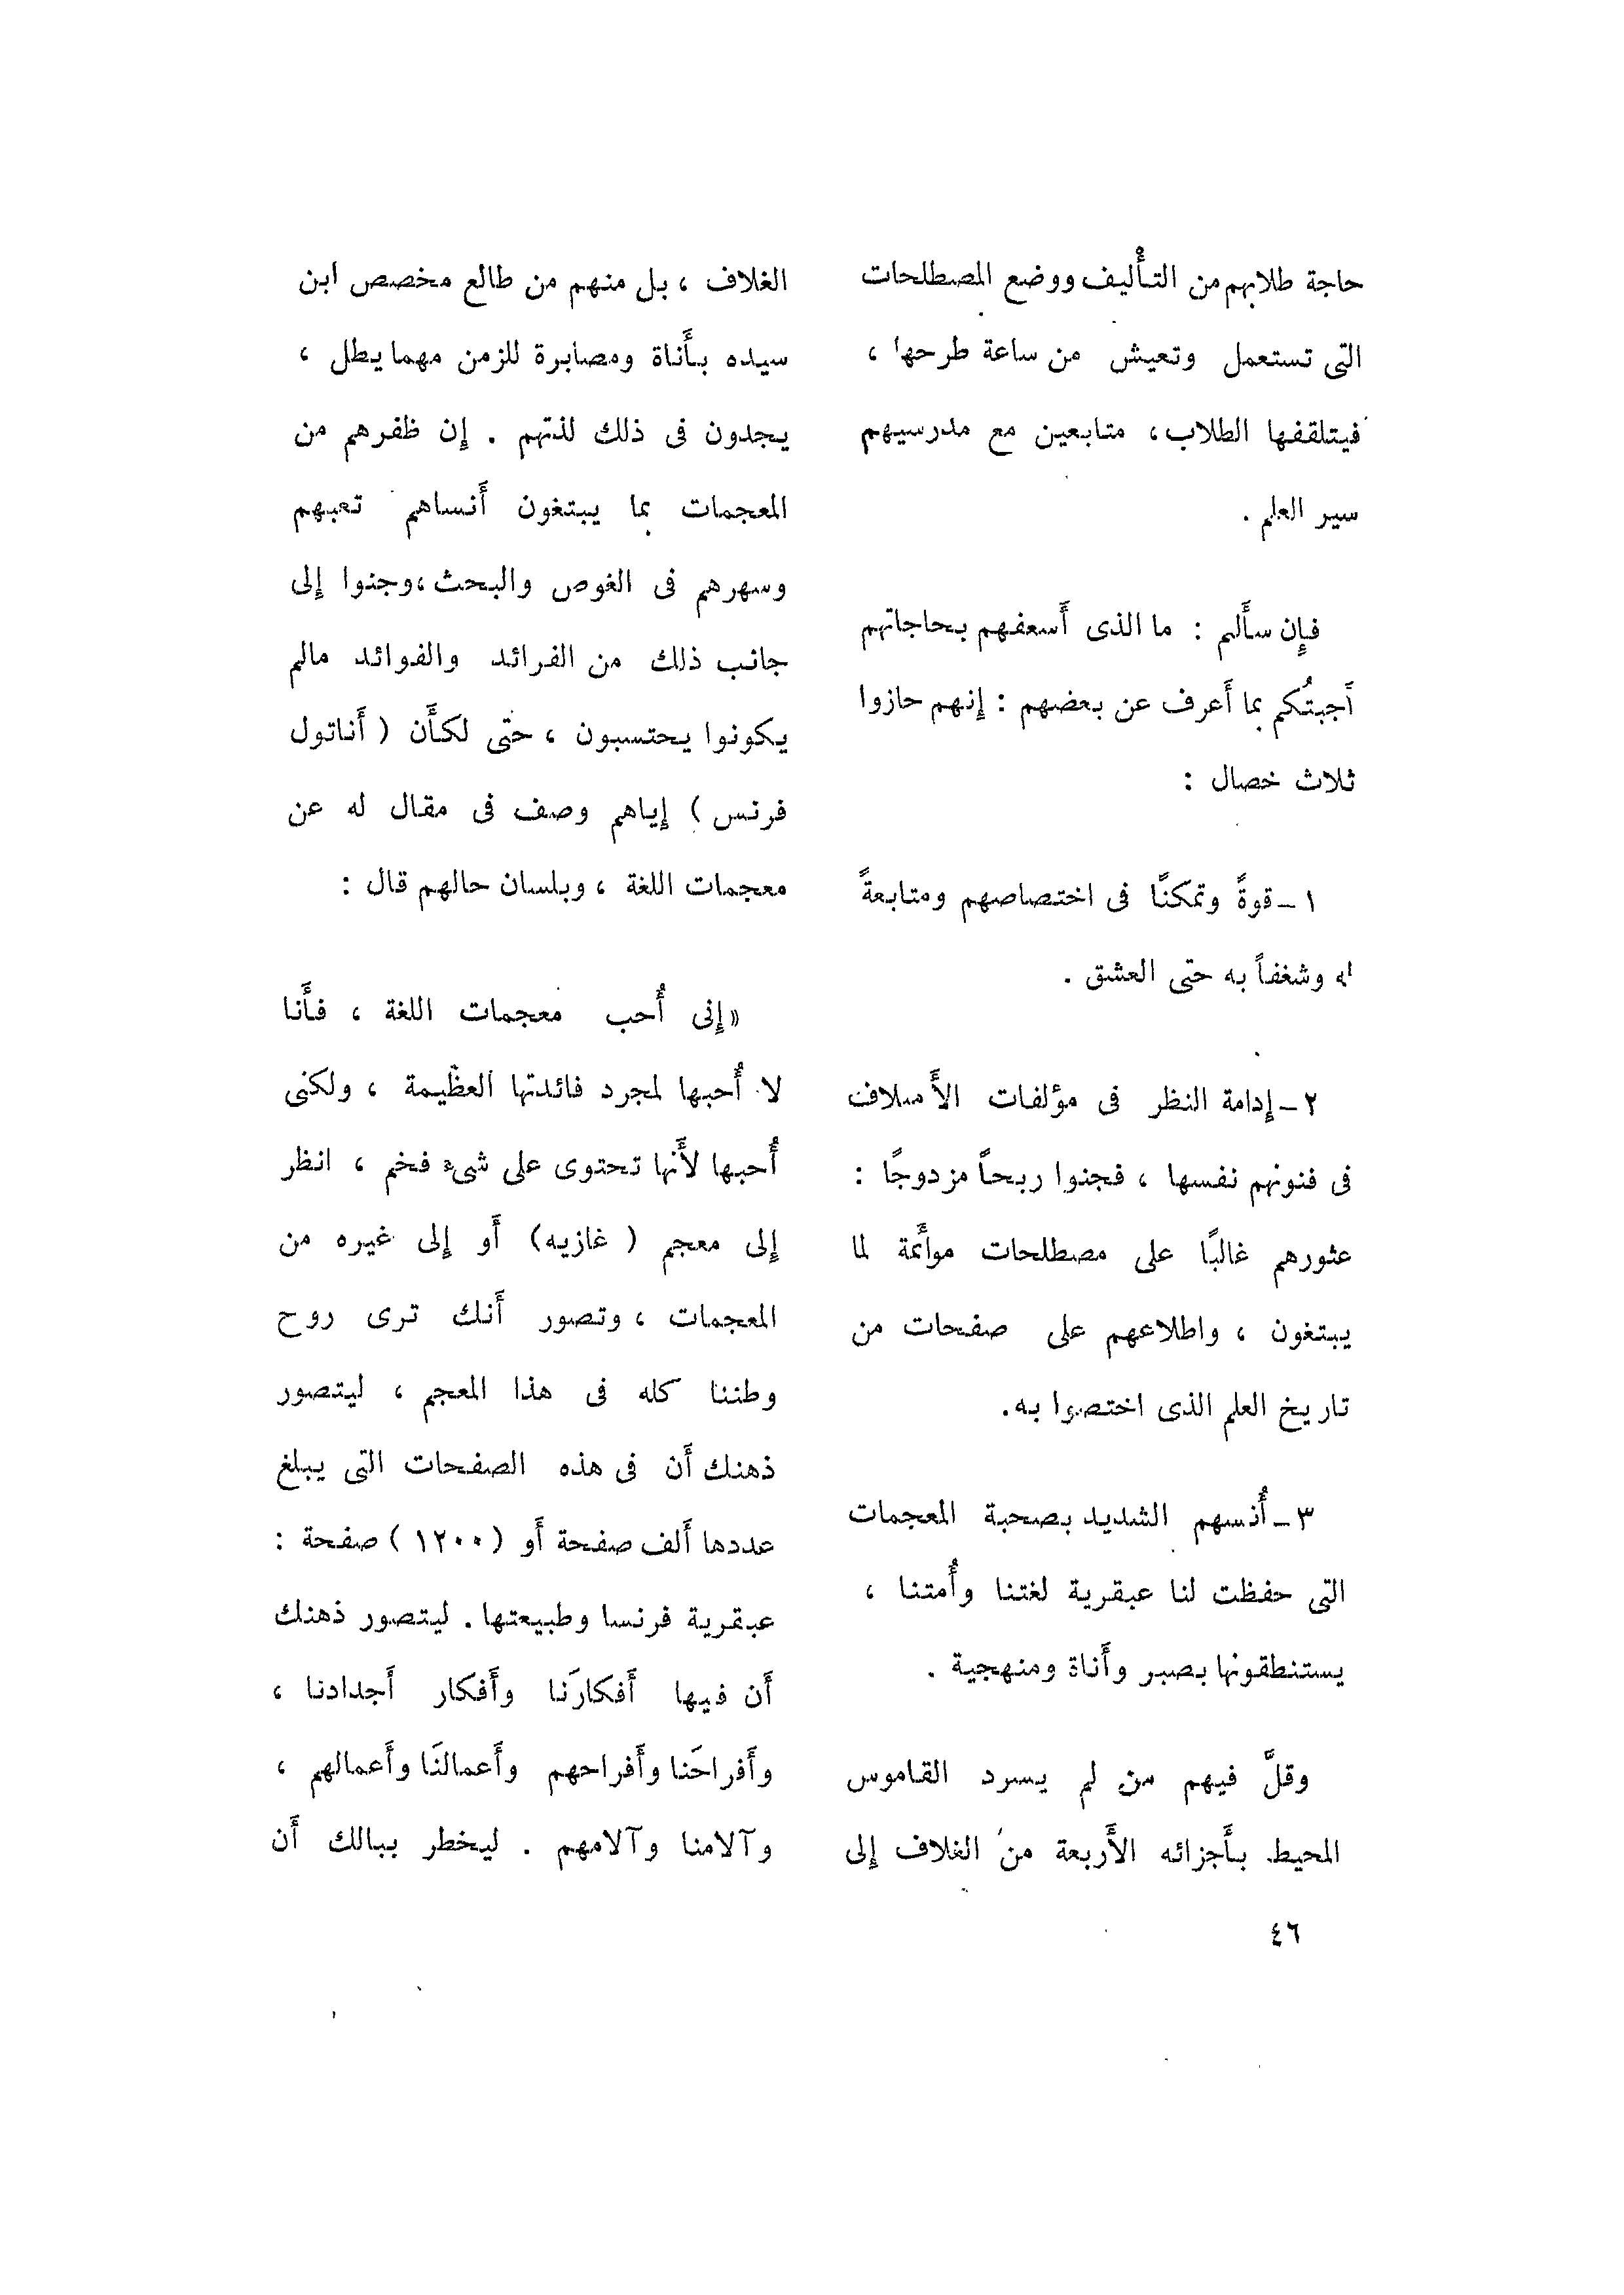 حاجة طلابهم من التأليف ووضع المصطلحات
التى تستعمل وتعيش من ساعة طرحها ،
فيتلقفها الطلاب، متابعين مع مدرسيهم
سير العلم .
فإن سألتم : ما الذى أسعفهم بحاجاتهم
أجبتُكم بما أعرف عن بعضهم : إنهم حازوا
ثلاث خصال :
١ – قوةً وتمكنًا فى اختصاصهم ومتابعةً
له وشغفاً به حتى العشق .
٢ – إدامة النظر فى مؤلفات الأسلاف
فى فنونهم نفسها ، فجنوا ربحاً مزدوجًا :
عثورهم غالبًا على مصطلحات موائمة لما
يبتغون ، واطلاعهم على صفحات من
تاريخ العلم الذى اختصوا به.
٣ – أُنسهم الشديد بصحبة المعجمات
التى حفظت لنا عبقرية لغتنا وأُمتنا ،
يستنطقونها بصبر وأَناة ومنهجية .
وقلَّ فيهم من لم يسرد القاموس
المحيط بأَجزائه الأَربعة من الغلاف إلى
الغلاف ، بل منهم من طالع مخصص ابن
سيده بأَناة ومصابرة للزمن مهما يطل ،
يجدون فى ذلك لذتهم . إن ظفرهم من
المعجمات بما يبتغون أَنساهم تعبهم
وسهرهم فى الغوص والبحث ،وجنوا إلى
جانب ذلك من الفرائد والفوائد مالم
يكونوا يحتسبون ، حتى لكأَن ( أَناتول
فرنس ) إياهم وصف فى مقال له عن
معجمات اللغة ، وبلسان حالهم قال :
«إنى أُحب معجمات اللغة ، فأَنا
لا أُحبها لمجرد فائدتها العظيمة ، ولكنى
أُحبها لأَنها تحتوى على شىء فخم ، انظر
إلى معجم ( غازيه) أَو إلى غيره من
المعجمات ، وتصور أَنك ترى روح
وطننا كله فى هذا المعجم ، ليتصور
ذهنك أَن فى هذه الصفحات التى يبلغ
عددها أَلف صفحة أَو (١٢٠٠ ) صفحة :
عبقرية فرنسا وطبيعتها . ليتصور ذهنك
أَن فيها أَفكارَنا وأَفكار أَجدادنا ،
وأَفراحَنا وأَفراحهم وأَعمالنَا وأَعمالهم ،
وآلامنا وآلامهم . ليخطر ببالك أَن
٤٦